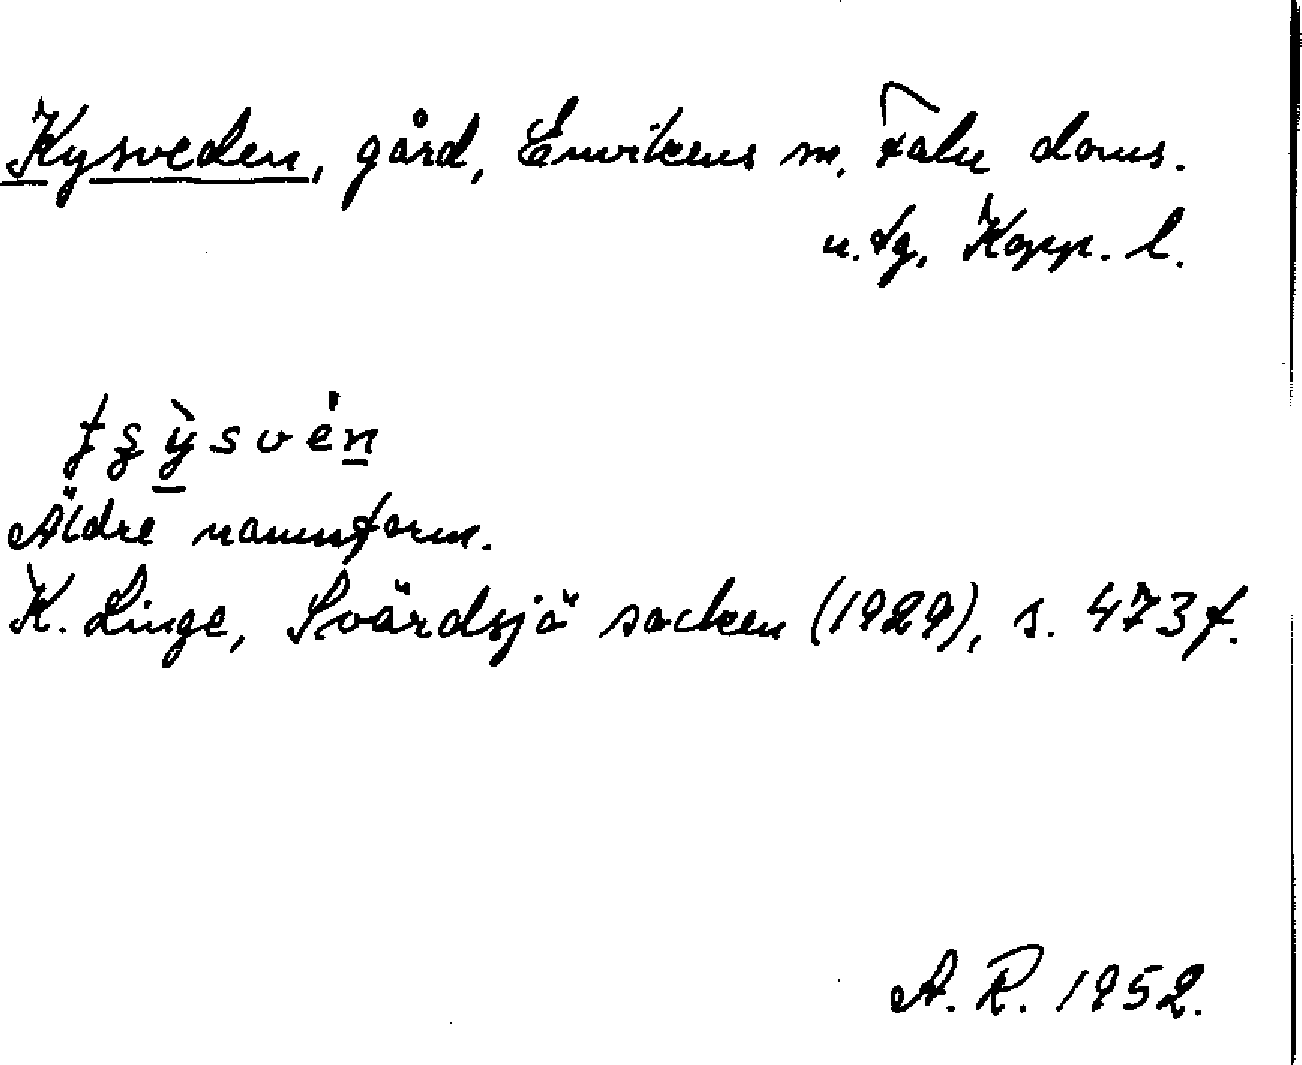 Kysveden, gård, Envikens sn, Falu doms.
n. tg, Kopp. l.
Äldre namnform.
K. Linge, Svärdsjö socken (1929), s. 473 f.
A. R. 1952.